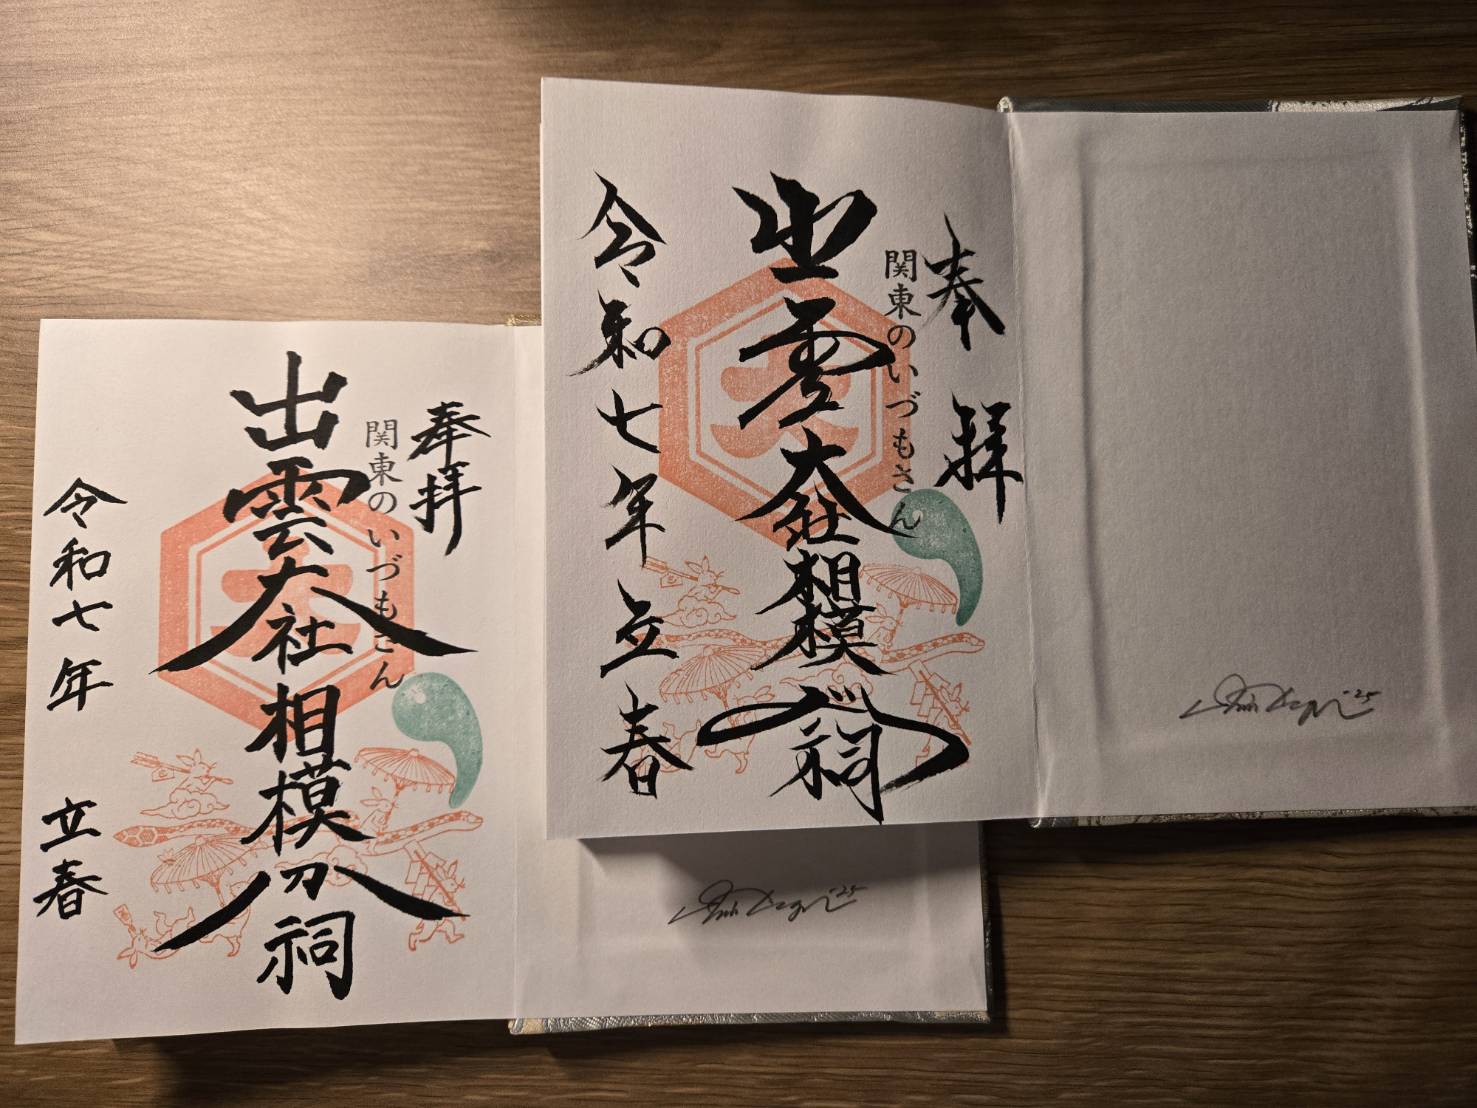 奉拝
関東のいづもさん
出雲大社相模分祠
令和七年 立春
奉拝
関東のいづもさん
出雲大社相模分祠
令和七年立春
'25
'25